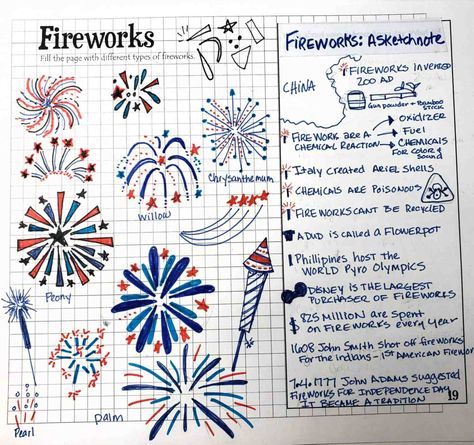 Fireworks
Fill the page with different types of fireworks.
Chrysanthemum
Willow
Peony
Pearl
Palm
FIREWORKS: ASKETCHNOTE
CHINA
FIREWORKS INVENTED
200 AD
Gun powder + Bamboo
STICK
OXIDIZER
FIREWORK ARE A
CHEMICAL REACTION
FUEL
CHEMICALS
FOR COLOR &
SOUND
ITALY CREATED ARIEL SHELLS
CHEMICALS ARE POISONOUS
FIREWORKS CANT BE RECYCLED
A DUD IS CALLED A FLOWERPOT
Phillipines HOST THE
WORLD PYRO OLYMPICS
DISNEY IS THE LARGEST
PURCHASER OF FIREWORKS
$25 MILLION ARE SPENT
ON FIREWORKS EVERY YEAR
1608 John Smith SHOT OFF fireworks
For the Indians - 1st AMERICAN Firewor
7-4-1777 JOHN ADAMS SUGGESTED
FIREWORKS FOR INDEPENDENCE DAY
IT BECAME A TRADITION
19